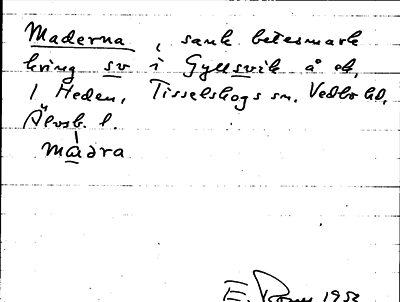 Maderna, sank betesmark
kring sv i Gyllsvik å ek,
1 Heden, Tisselskogs sn. Vedbo hd,
Älvsb. l.
madra
E. 1952